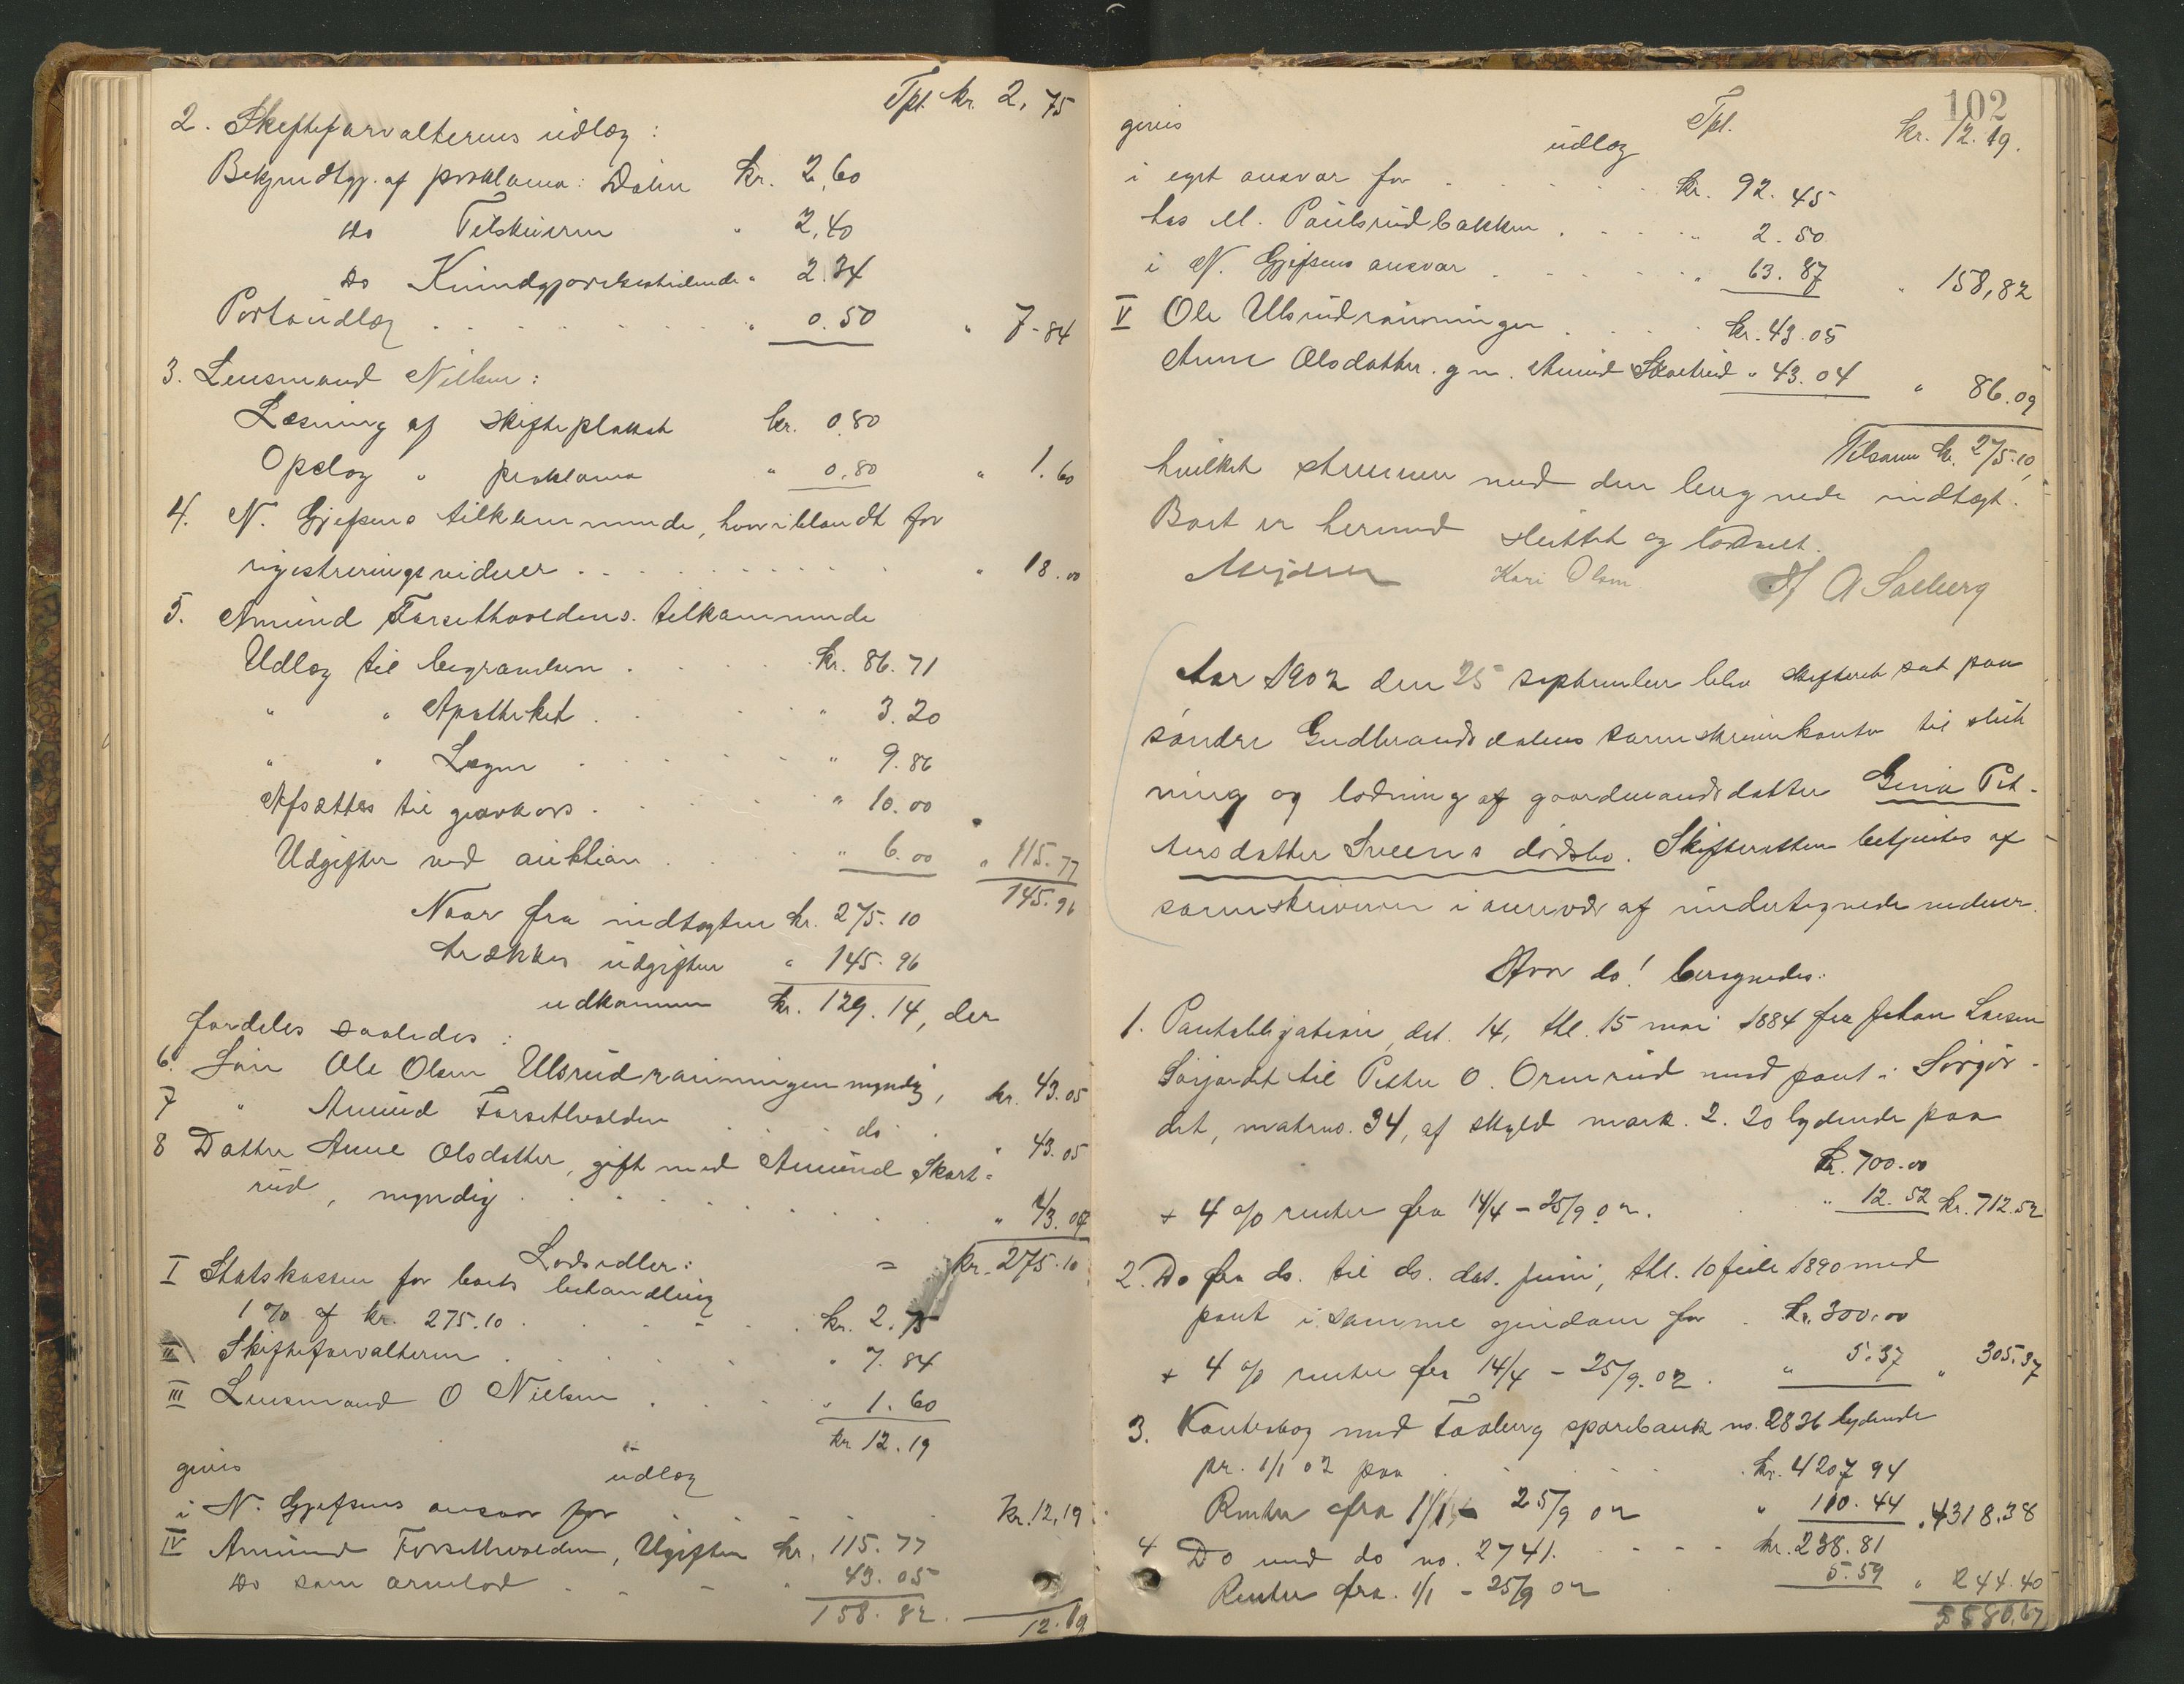 Tpt. kr. 2,75
2. Skifteforvalterens udlæg:
Bekjendtgj. af proklama: Dølen kr. 2,60
do Tilskueren " 2,40
do Kundgjørelsestidende " 2.34
Portoudlæg . . . " 0.50 " 7.84
3. Lensmand Nilsen:
Læsning af skifteplakat kr. 0.80
Opslag " proklama " 0.80 " 1.60
4. N. Gjefsens tilkommende, hvoriblandt for
registreringsvidner . . . " 18.00
5. Amund Forsethvoldens tilkommende
Udlæg til begravelsen . . kr. 86.71
" " Apotheket . . " 3.20
" " Lægen . . " 9.86
Afsættes til gravkors . . " 10.00
Udgifter ved auktion . . " 6.00 " 115.77
145.96
Naar fra indtægten kr. 275.10
trækkes udgifter " 145.96
udkommer kr. 129.14, der
fordeles saaledes:
6. Søn Ole Olsen Ulsrudrønningen myndig, kr. 43.05
7 " Amund Forsethvolden . . do . " 43.05
8 Datter Anne Olsdatter, gift med Amund Skart-
rud, myndig . . . " 43.04
= kr. 275.10
Lodsedler:
I Statskassen for boets behandling
1 % af kr. 275.10 . . . kr. 2.75
II Skifteforvalteren . . . " 7.84
III Lensmand O Nilsen . . . " 1.60
kr. 12.19
gives udlæg
i N. Gjefsens ansvar for . . . kr. 12,19
IV Amund Forsethvolden, Ugifter kr. 115.77
do som arvelod . . . " 43.05
158.82.
12.19
102
Tpt. kr. 12.19.
gives udlæg
i eget ansvar for . . . kr. 92.45
hos M. Paulsrudbakken . . . " 2.50
i N. Gjefsens ansvar . . . " 63.87 " 158,82
V Ole Ulsrudrønningen . . . kr. 43.05
Anne Olsdatter g. m. Amund Skartrud " 43.04 " 86.09
Tilsam. kr. 275.10,
hvilket stemmer med den beregnede indtægt.
Boet er hermed sluttet og loddet.
Kari Olsen A Solberg
Aar 1902 den 25 september blev skifteret sat paa
søndre Gudbrandsdalens sorenskriverkontor til slut-
ning og lodning af gaardmandsdatter Gina Pet-
tersdatter Sveens dødsbo. Skifteretten betjentes af
sorenskriveren i nærvær af undertegnede vidner.
Hvor da! beregnedes:
1. Pantobligation, dat. 14, thl. 15 mai 1884 fra Johan Larsen
Sørjordet til Petter O. Ormrud med pant i Sørgjor-
det, matrno. 34, af skyld mark. 2.20 lydende paa
kr. 700.00
+ 4 % renter fra 14/4 - 25/9 02. " 12.52 kr. 712.52
2. Do fra do. til do. dat. juni, thl. 10 juli 1890 med
pant i samme eiendom for . kr. 300.00
+ 4 % renter fra 14/4 - 25/9. 02. " 5.37 " 305.37
3. Kontrabog med Faaberg sparebank no. 2836 lydende
pr. 1/1 02 paa . . . kr. 4207 94
Renter fra 1/1 - 25/9 02 " 110.44 " 4318.38
4 Do med do no. 2741. . . . kr. 238.81
Renter fra 1/1 - 25/9 02 5.59 " 244.40
5580.67